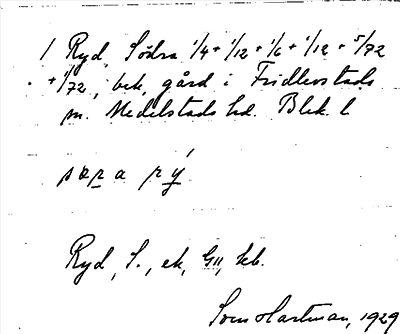 1 Ryd, Södra 1/4 + 1/12 + 1/6 + 1/12 + 5/72
+ 1/72, bek, gård i Fridlevstads
sn. Medelstads hd. Blek. l
a
Ryd, S., ek, GII, kb.
Sven Hartman, 1929